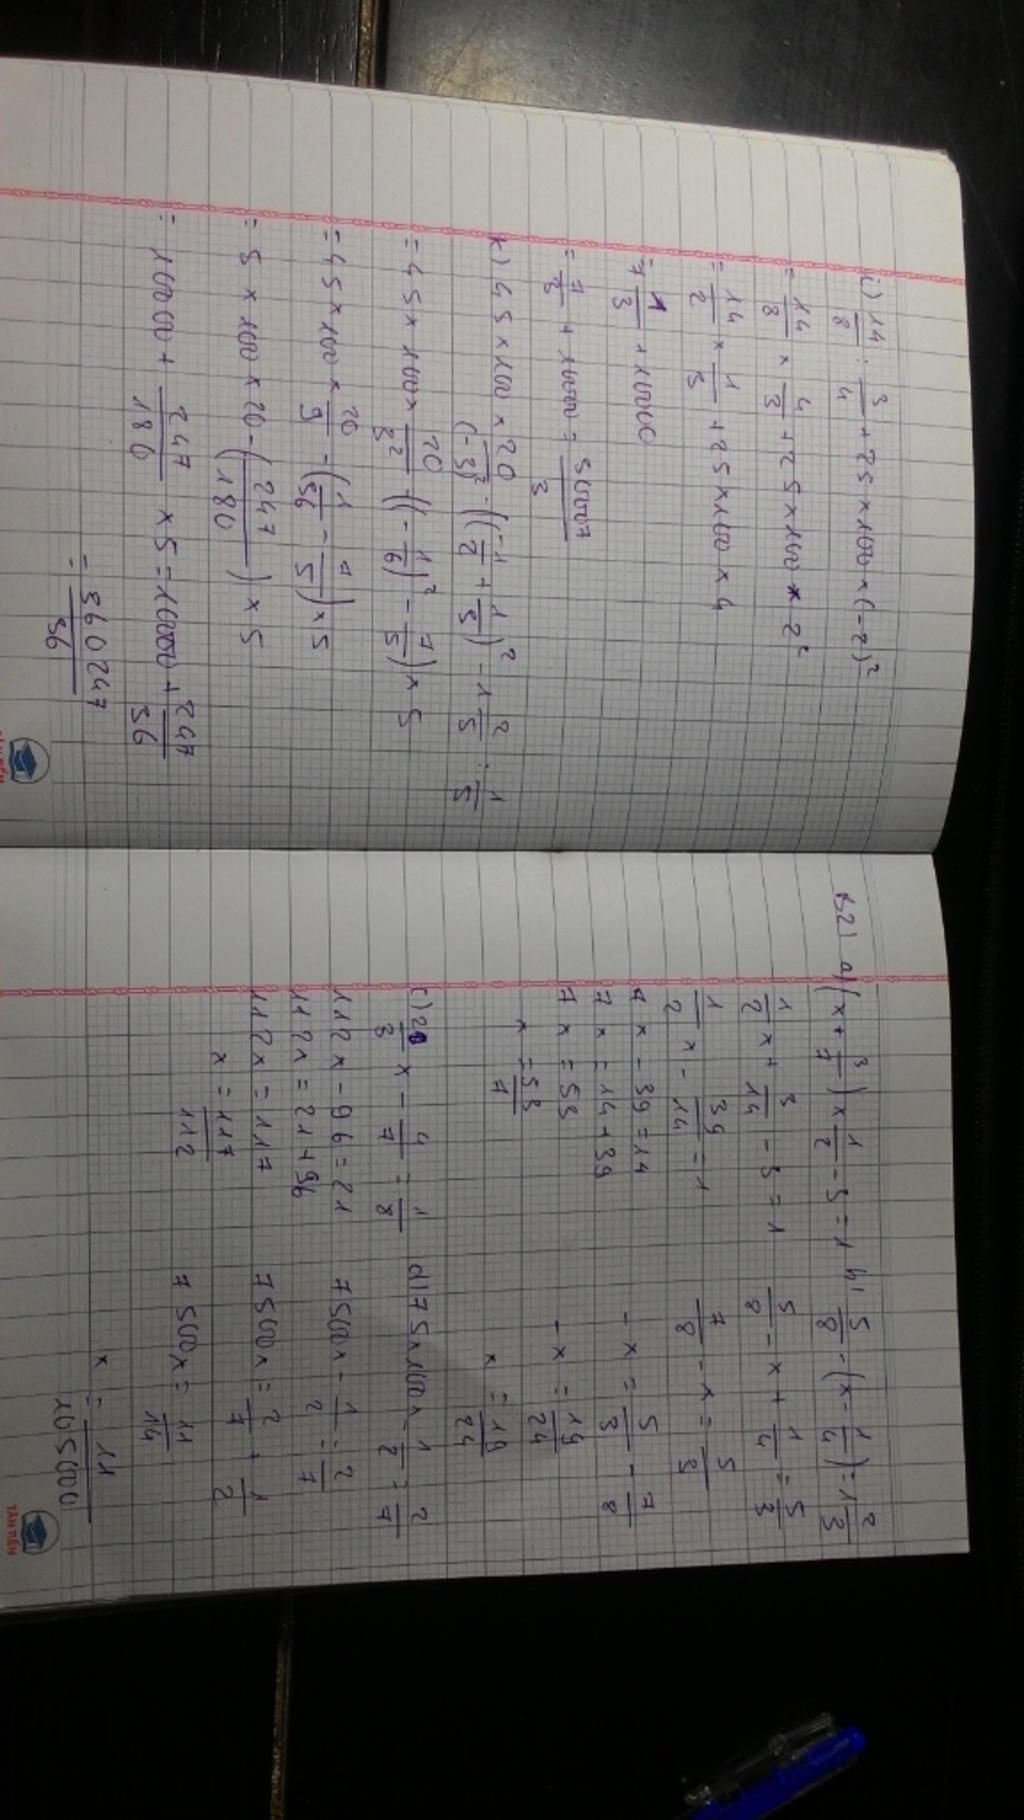 i) 14/8 : 3/4 + 25 x 100 x (-2)²
= 14/8 x 4/3 + 25 x 100 x 2²
= 14/2 x 1/3 + 25 x 100 x 4
= 7 1/3 + 10000
= 7/3 + 10000 = 30007/3
k) 45 x 100 x 20/(-3)² - ((-1/2 + 1/3)² - 1 2/5) : 1/5
= 45 x 100 x 20/3² - ((-1/6)² - 7/5) x 5
= 45 x 100 x 20/9 - (1/36 - 7/5) x 5
= 5 x 100 x 20 - (247/180) x 5
= 10000 + 247/180 x 5 = 10000 + 247/36
= 360247/36
B2) a) (x + 3/7) x 1/2 - 3 = 1
1/2 x + 3/14 - 3 = 1
1/2 x - 39/14 = 1
7x - 39 = 14
7x = 14 + 39
7x = 53
x = 53/7
b) 5/8 - (x - 1/4) = 1 2/3
5/8 - x + 1/4 = 5/3
7/8 - x = 5/3
- x = 5/3 - 7/8
- x = 19/24
x = 19/24
c) 2/3 x - 4/7 = 1/8
112x - 96 = 21
112x = 21 + 96
112x = 117
x = 117/112
d) 75 x 100x - 1/2 = 2/7
7500x - 1/2 = 2/7
7500x = 2/7 + 1/2
7500x = 11/14
x = 11/105000
TÂN TIẾN